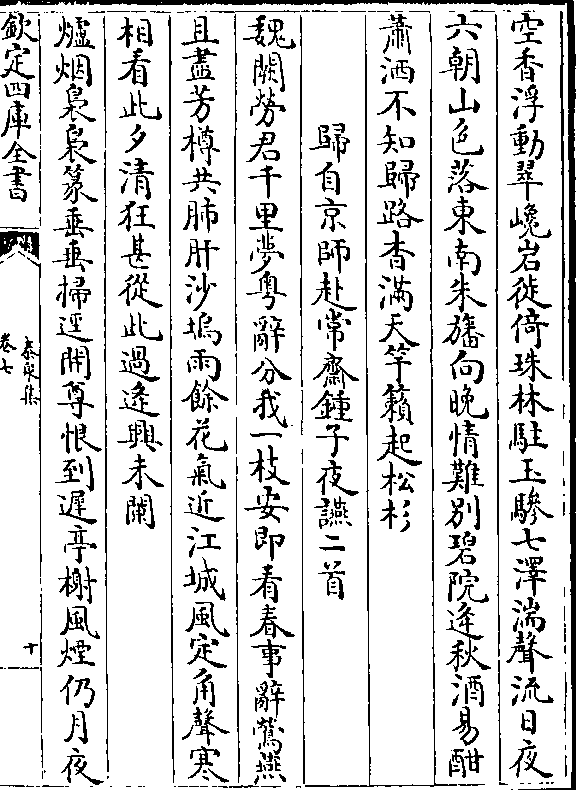 空香浮動翠巉岩徙倚珠林駐玉驂七澤湍聲流日夜
六朝山色落東南朱旛向晚情難別碧院逢秋酒易酣
蕭洒不知歸路杳滿天竽籟起松杉
歸自京師赴常齋鍾子夜讌二首
魏闕勞君千里夢粵辭分我一枝安即看春事辭鶯燕
且盡芳樽共肺肝沙塢雨餘花氣近江城風定角聲寒
相看此夕清狂甚從此過逢興未闌
爐烟裊裊篆垂垂掃逕開尊恨到遲亭榭風煙仍月夜
欽定四庫全書
泰泉集
卷七
十